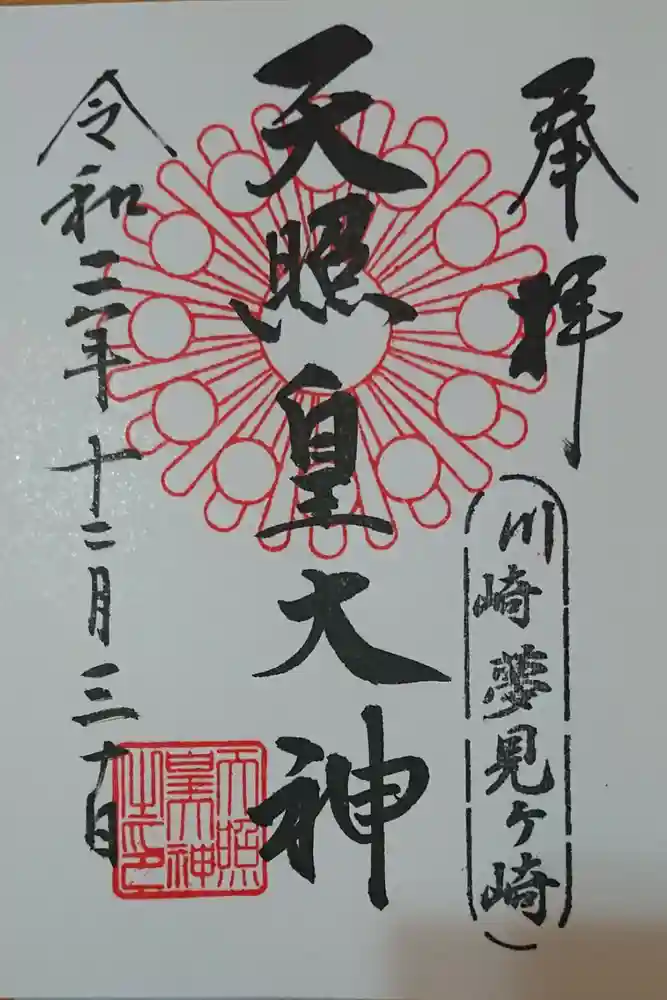 奉拝
川崎夢見ヶ崎
天照皇大神
令和二年十二月三十日
天照
皇大神
之印